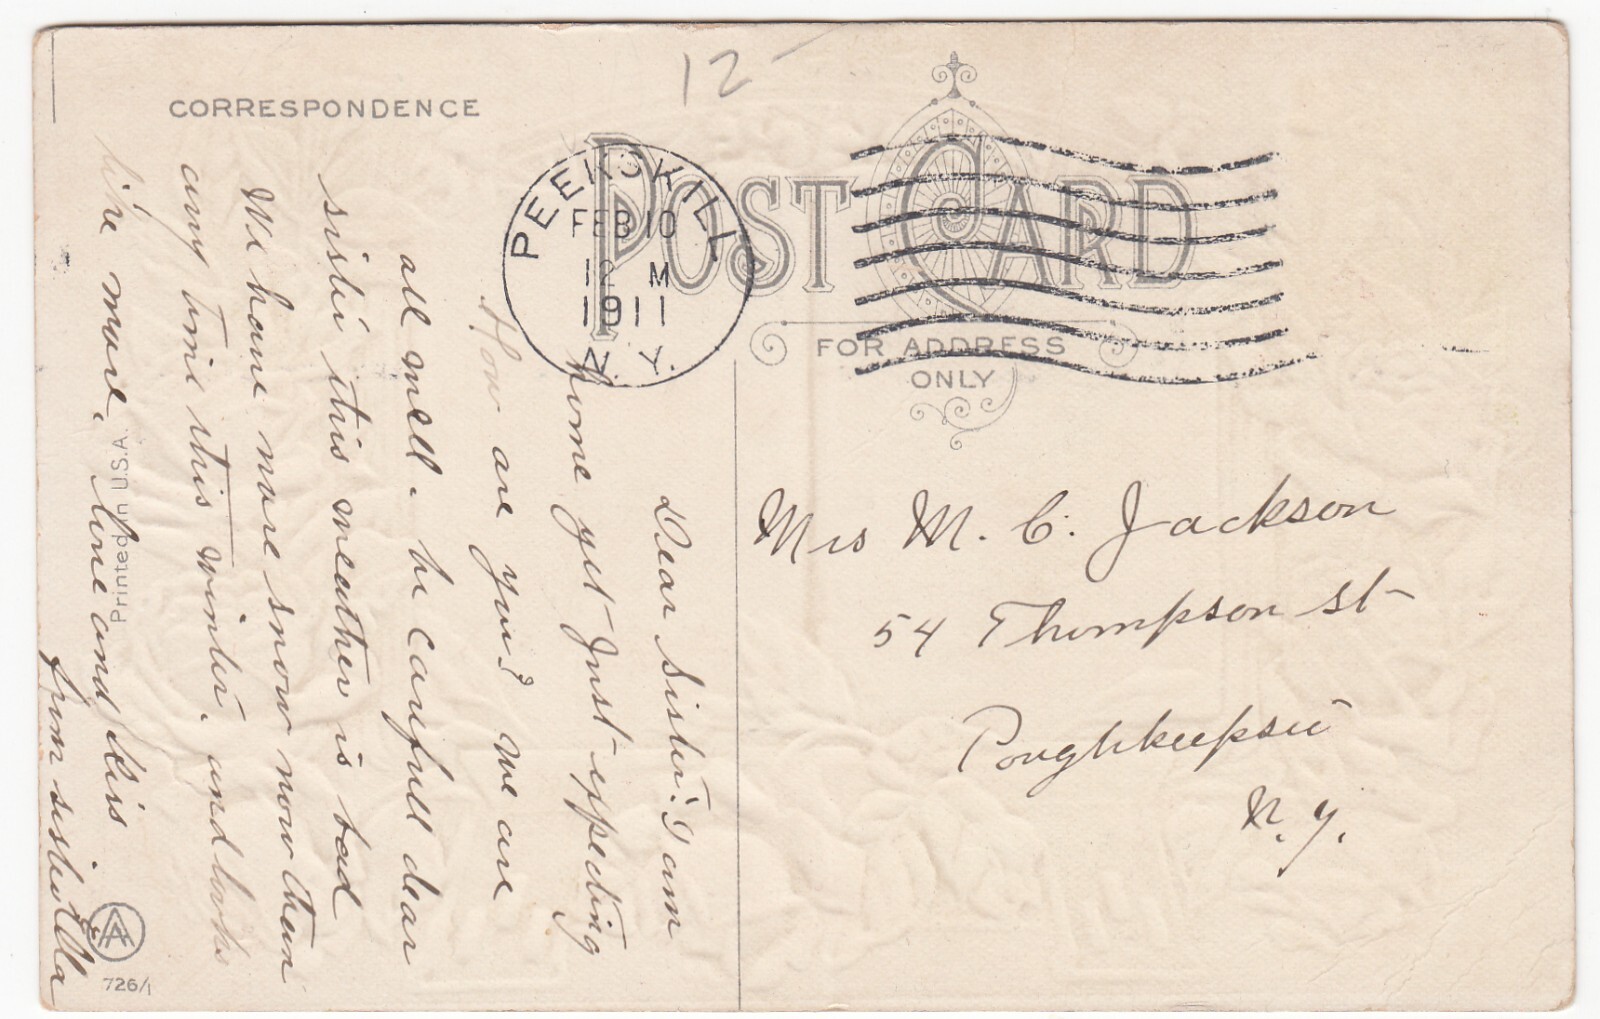 12-
CORRESPONDENCE
POST CARD
FOR ADDRESS
ONLY
PEEKSKILL
FEB 10
12 M
1911
N. Y.
Dear Sister. I am
home yet Just expecting
How are you? We are
all well. be carefull dear
sister this weather is bad
We have more snow now then
any time this winter. and looks
like more. love and kiss
from sister Ella
Mrs M. C. Jackson
54 Thompson St
Poughkeepsie
N. Y.
Printed in U.S.A.
726/1